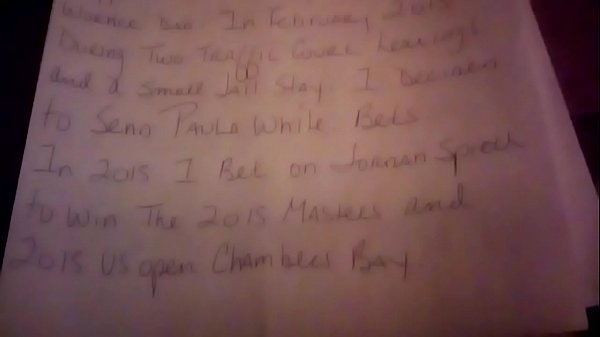 In February 2015
During Two Traffic Court hearings
and a small Jail Stay, I Deciden
to Senn Paula White Bets
In 2015 I Bet on Jordan Spieth
to Win The 2015 Masters and
2015 US open Chambers Bay